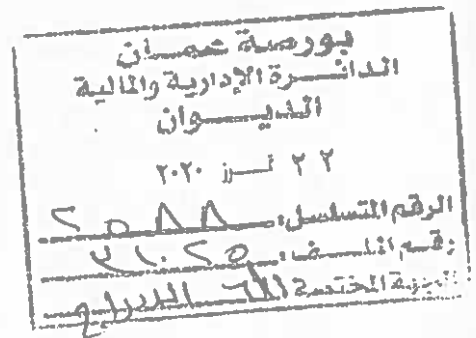 بورصة عمان
الدائرة الإدارية والمالية
الديوان
٢٢ تموز ٢٠٢٠
الرقم المتسلسل: ٢٥٨٨
رقم الملف:
الجهة المختصة: